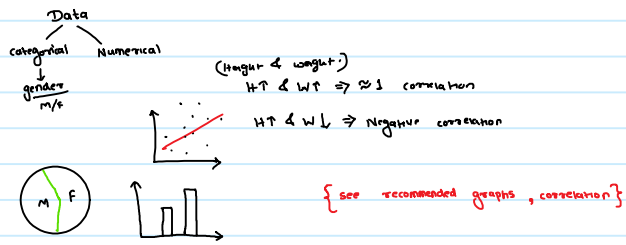 Data
categorical Numerical
gender
M/F
(Height & weight.)
H↑ & W↑ ⇒ ≈ 1 correlation
H↑ & W↓ ⇒ Negative correlation
M F
{see recommended graphs, correlation}